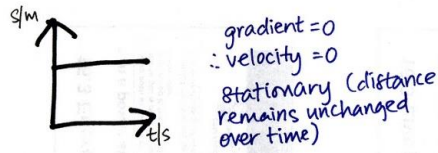 s/m
gradient =0
∴ velocity =0
stationary (distance
remains unchanged
over time)
t/s